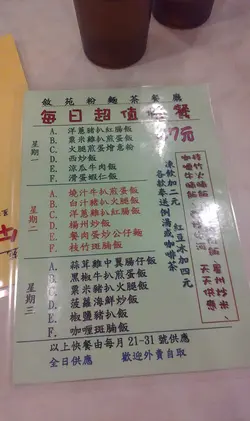 敘苑粉麵茶餐廳
每日超值 餐
7元
星期一
A. 洋蔥豬扒紅腸飯
B. 粟米雞扒煎蛋飯
C. 火腿煎蛋燴意粉
D. 西炒飯
E. 涼瓜牛肉飯
F. 滑蛋蝦仁飯
星期二
A. 燒汁牛扒煎蛋飯
B. 白汁豬扒火腿飯
C. 洋蔥雞扒紅腸飯
D. 楊州炒飯
E. 餐肉蛋公仔麵
F. 枝竹斑腩飯
星期三
A. 蒜茸雞中翼腸仔飯
B. 黑椒牛扒煎蛋飯
C. 粟米豬扒火腿飯
D. 菠蘿海鮮炒飯
E. 椒鹽豬扒飯
F. 咖喱斑腩飯
凍飲加二元
紅豆冰加四元
各款餐送例湯或咖啡茶
枝竹火腩飯
咖喱牛腩飯
星州炒米
天天供應
以上快餐由每月21-31號供應
全日供應 歡迎外賣自取